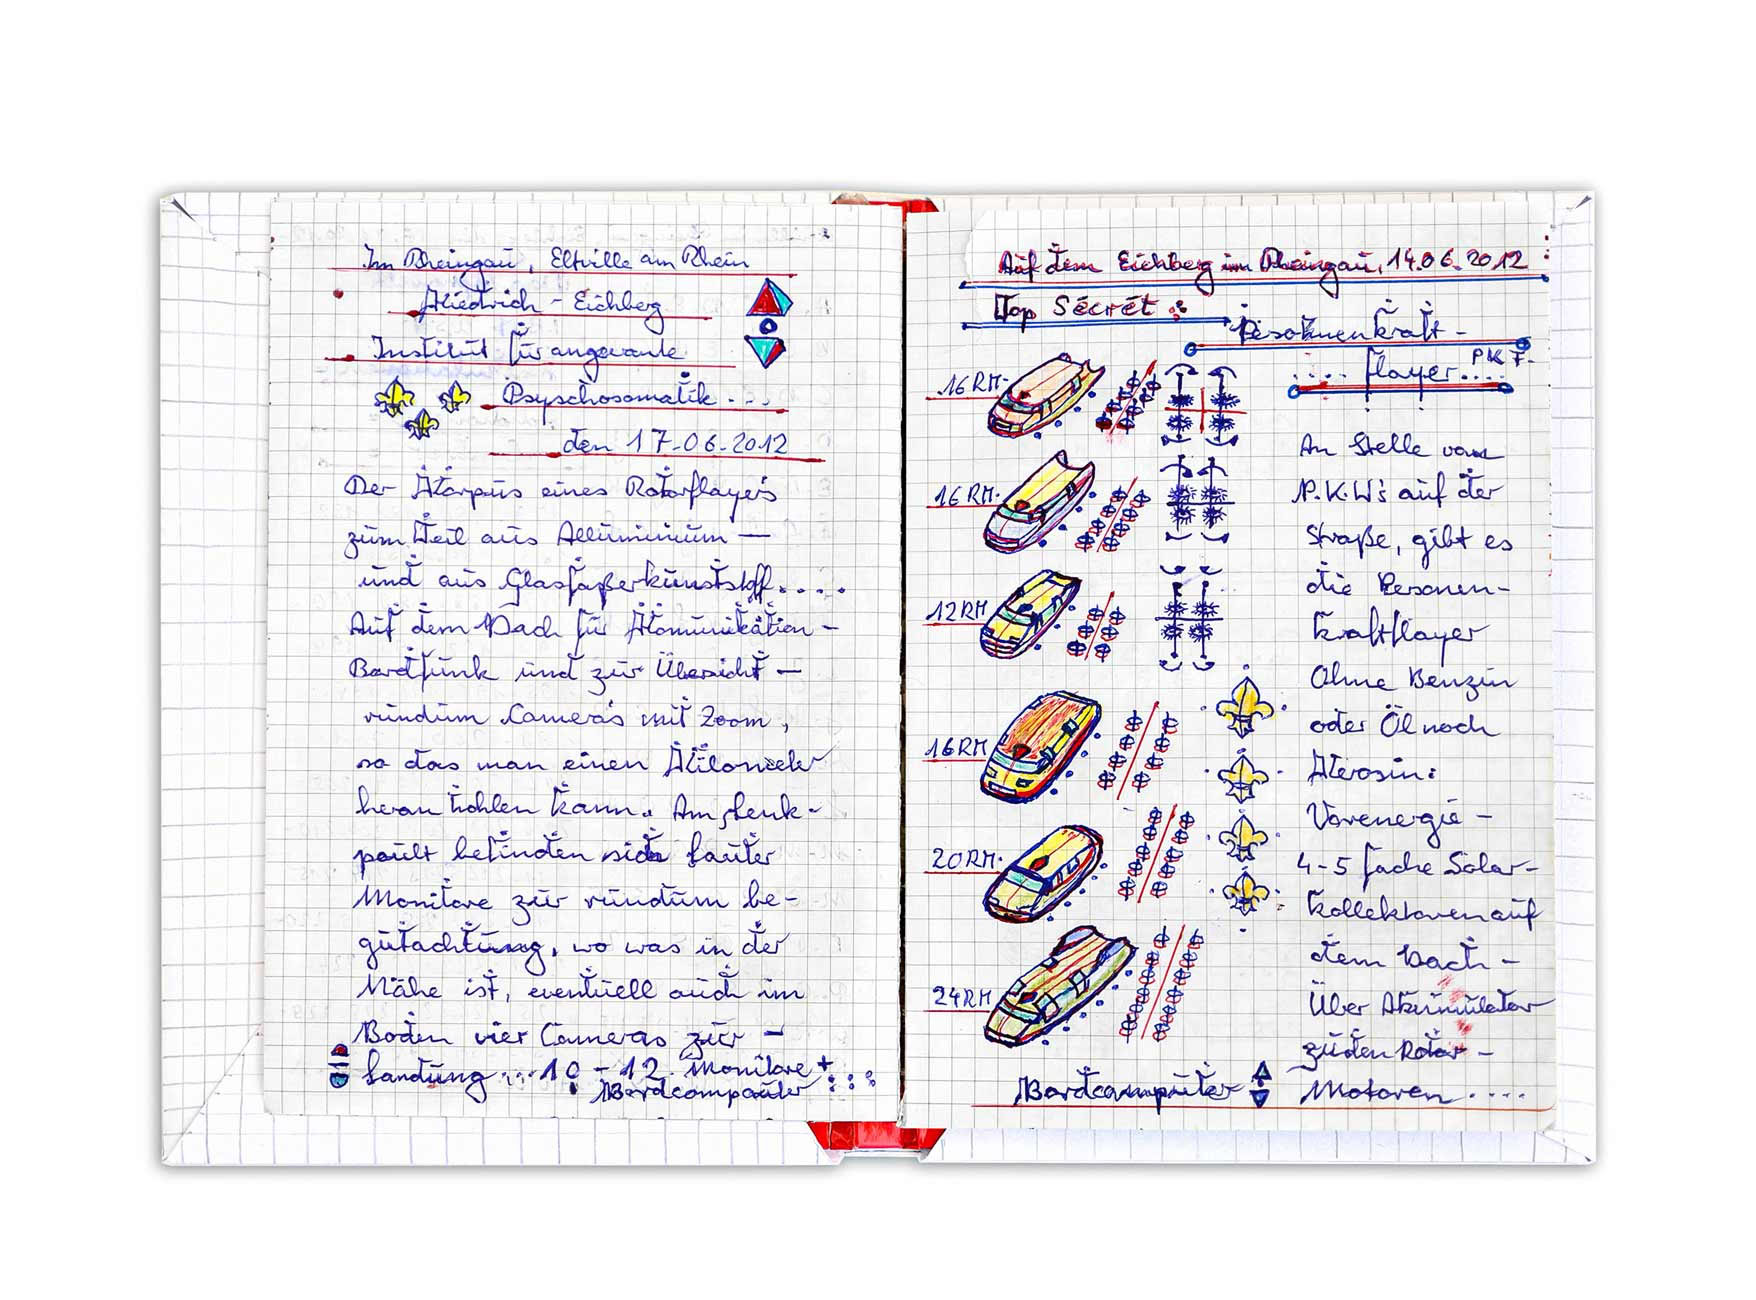 Im Rheingau, Eltville am Rhein
Kiedrich - Eichberg
Institut für angewante
Psyschosomatik...
den 17-06-2012
Der Körpus eines Rotorflayer's
zum Teil aus Alluminium —
und aus Glasfaßerkunststoff....
Auf dem Dach für Komunikation -
Bordfunk und zur Übersicht -
rundum Camera's mit Zoom,
so das man einen Kilometer
heran hohlen kann. Am Lenk-
pault befinden sich lauter
Monitore zur rundum be-
gutachtung, wo was in der
Nähe ist, eventuell auch im
Boden vier Cameras zur -
Landung ... 10 - 12 Monitore +
Bordcomputer
Auf dem Eichberg im Rheingau, 14.06.2012
Top Secret
Persohnenkraft -
.... flayer.... PKF-
16 RM.
16 RM.
12 RM
16 RM
20 RM.
24 RM
An Stelle von
P.K.W's auf der
Straße, gibt es
die Personen-
kraftflayer
Ohne Benzin
oder Öl noch
Kerosin:
Vorenergie -
4-5 fache Solar-
kollektoren auf
dem Dach -
Über Akumulator
zu den Rotor -
Motoren....
Bordcomputer